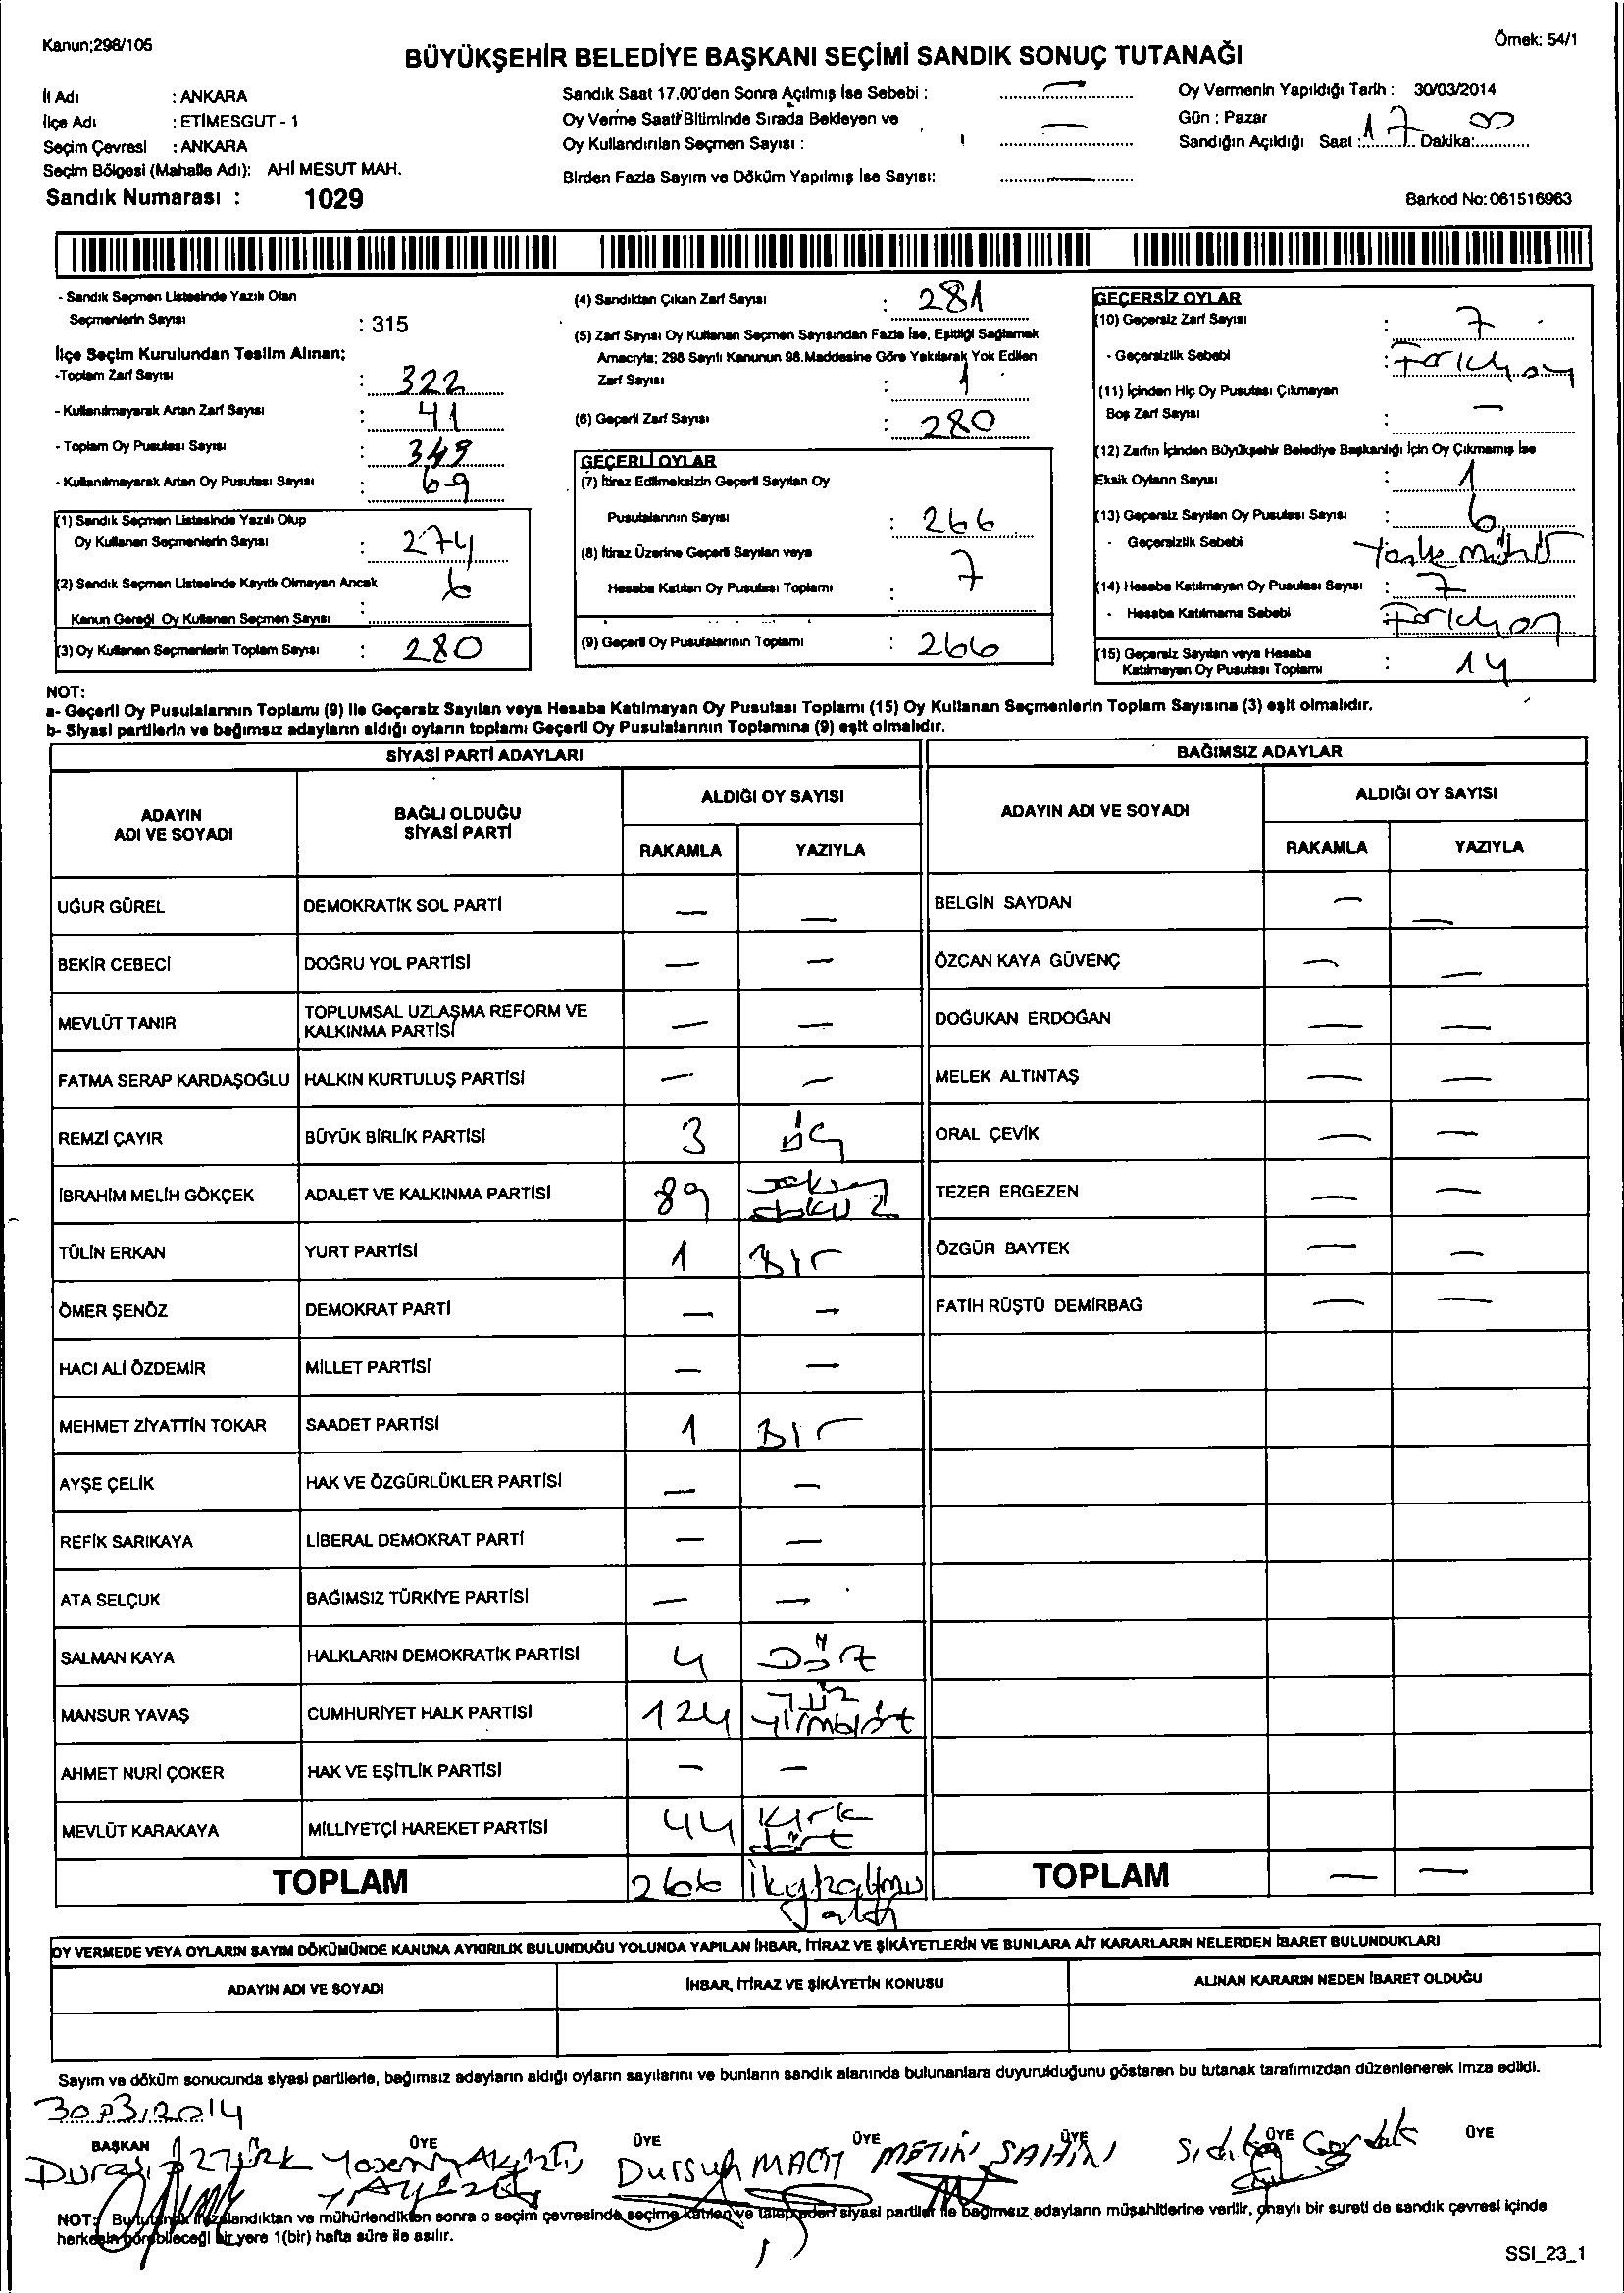 Kanun;298/105
Örnek: 54/1
BÜYÜKŞEHİR BELEDİYE BAŞKANI SEÇİMİ SANDIK SONUÇ TUTANAĞI
İl Adı : ANKARA
İlçe Adı : ETİMESGUT - 1
Seçim Çevresi : ANKARA
Seçim Bölgesi (Mahalle Adı): AHİ MESUT MAH.
Sandık Numarası : 1029
Sandık Saat 17.00'den Sonra Açılmış İse Sebebi : —
Oy Verme Saati Bitiminde Sırada Bekleyen ve
Oy Kullandırılan Seçmen Sayısı : —
Birden Fazla Sayım ve Döküm Yapılmış İse Sayısı: —
Oy Vermenin Yapıldığı Tarih : 30/03/2014
Gün : Pazar
Sandığın Açıldığı Saat : 17 Dakika: 00
Barkod No: 061516963
- Sandık Seçmen Listesinde Yazılı Olan
Seçmenlerin Sayısı : 315
İlçe Seçim Kurulundan Teslim Alınan;
-Toplam Zarf Sayısı : 322
- Kullanılmayarak Artan Zarf Sayısı : 41
- Toplam Oy Pusulası Sayısı : 349
- Kullanılmayarak Artan Oy Pusulası Sayısı : 69
(1) Sandık Seçmen Listesinde Yazılı Olup
Oy Kullanan Seçmenlerin Sayısı : 274
(2) Sandık Seçmen Listesinde Kayıtlı Olmayan Ancak
Kanun Gereği Oy Kullanan Seçmen Sayısı : 6
(3) Oy Kullanan Seçmenlerin Toplam Sayısı : 280
(4) Sandıktan Çıkan Zarf Sayısı : 281
(5) Zarf Sayısı Oy Kullanan Seçmen Sayısından Fazla İse, Eşitliği Sağlamak
Amacıyla; 298 Sayılı Kanunun 98.Maddesine Göre Yakılarak Yok Edilen
Zarf Sayısı : 1
(6) Geçerli Zarf Sayısı : 280
GEÇERLİ OYLAR
(7) İtiraz Edilmeksizin Geçerli Sayılan Oy
Pusulalarının Sayısı : 266
(8) İtiraz Üzerine Geçerli Sayılan veya
Hesaba Katılan Oy Pusulası Toplamı : 7
(9) Geçerli Oy Pusulalarının Toplamı : 266
GEÇERSİZ OYLAR
(10) Geçersiz Zarf Sayısı : 7
- Geçersizlik Sebebi :
(11) İçinden Hiç Oy Pusulası Çıkmayan
Boş Zarf Sayısı : —
(12) Zarfın İçinden Büyükşehir Belediye Başkanlığı İçin Oy Çıkmamış İse
Eksik Oyların Sayısı : 1
(13) Geçersiz Sayılan Oy Pusulası Sayısı : 6
- Geçersizlik Sebebi
(14) Hesaba Katılmayan Oy Pusulası Sayısı : 7
- Hesaba Katılmama Sebebi :
(15) Geçersiz Sayılan veya Hesaba
Katılmayan Oy Pusulası Toplamı : 14
NOT:
a- Geçerli Oy Pusulalarının Toplamı (9) ile Geçersiz Sayılan veya Hesaba Katılmayan Oy Pusulası Toplamı (15) Oy Kullanan Seçmenlerin Toplam Sayısına (3) eşit olmalıdır.
b- Siyasi partilerin ve bağımsız adayların aldığı oyların toplamı Geçerli Oy Pusulalarının Toplamına (9) eşit olmalıdır.
SİYASİ PARTİ ADAYLARI
ADAYIN ADI VE SOYADI BAĞLI OLDUĞU SİYASİ PARTİ ALDIĞI OY SAYISI RAKAMLA YAZIYLA
UĞUR GÜREL DEMOKRATİK SOL PARTİ — —
BEKİR CEBECİ DOĞRU YOL PARTİSİ — —
MEVLÜT TANIR TOPLUMSAL UZLAŞMA REFORM VE KALKINMA PARTİSİ — —
FATMA SERAP KARDAŞOĞLU HALKIN KURTULUŞ PARTİSİ — —
REMZİ ÇAYIR BÜYÜK BİRLİK PARTİSİ 3 üç
İBRAHİM MELİH GÖKÇEK ADALET VE KALKINMA PARTİSİ 89 seksen dokuz
TÜLİN ERKAN YURT PARTİSİ 1 Bir
ÖMER ŞENÖZ DEMOKRAT PARTİ — —
HACI ALİ ÖZDEMİR MİLLET PARTİSİ — —
MEHMET ZİYATTİN TOKAR SAADET PARTİSİ 1 Bir
AYŞE ÇELİK HAK VE ÖZGÜRLÜKLER PARTİSİ — —
REFİK SARIKAYA LİBERAL DEMOKRAT PARTİ — —
ATA SELÇUK BAĞIMSIZ TÜRKİYE PARTİSİ — —
SALMAN KAYA HALKLARIN DEMOKRATİK PARTİSİ 4 Dört
MANSUR YAVAŞ CUMHURİYET HALK PARTİSİ 124 Yüz
AHMET NURİ ÇOKER HAK VE EŞİTLİK PARTİSİ — —
MEVLÜT KARAKAYA MİLLİYETÇİ HAREKET PARTİSİ 44 Kırk dört
TOPLAM 266
BAĞIMSIZ ADAYLAR
ADAYIN ADI VE SOYADI ALDIĞI OY SAYISI RAKAMLA YAZIYLA
BELGİN SAYDAN — —
ÖZCAN KAYA GÜVENÇ — —
DOĞUKAN ERDOĞAN — —
MELEK ALTINTAŞ — —
ORAL ÇEVİK — —
TEZER ERGEZEN — —
ÖZGÜR BAYTEK — —
FATİH RÜŞTÜ DEMİRBAĞ — —
TOPLAM — —
OY VERMEDE VEYA OYLARIN SAYIM DÖKÜMÜNDE KANUNA AYKIRILIK BULUNDUĞU YOLUNDA YAPILAN İHBAR, İTİRAZ VE ŞİKÂYETLERİN VE BUNLARA AİT KARARLARIN NELERDEN İBARET BULUNDUKLARI
ADAYIN ADI VE SOYADI İHBAR, İTİRAZ VE ŞİKÂYETİN KONUSU ALINAN KARARIN NEDEN İBARET OLDUĞU
Sayım ve döküm sonucunda siyasi partilerle, bağımsız adayların aldığı oyların sayılarını ve bunların sandık alanında bulunanlara duyurulduğunu gösteren bu tutanak tarafımızdan düzenlenerek imza edildi.
30.03.2014
BAŞKAN ÜYE ÜYE ÜYE ÜYE ÜYE ÜYE
Dursun METİN ŞAHİN
NOT: Bu tutanak imzalandıktan ve mühürlendikten sonra o seçim çevresinde seçime katılan ve talep eden siyasi partiler ile bağımsız adayların müşahitlerine verilir, onaylı bir sureti de sandık çevresi içinde
herkesin görebileceği bir yere 1(bir) hafta süre ile asılır.
SSI_23_1